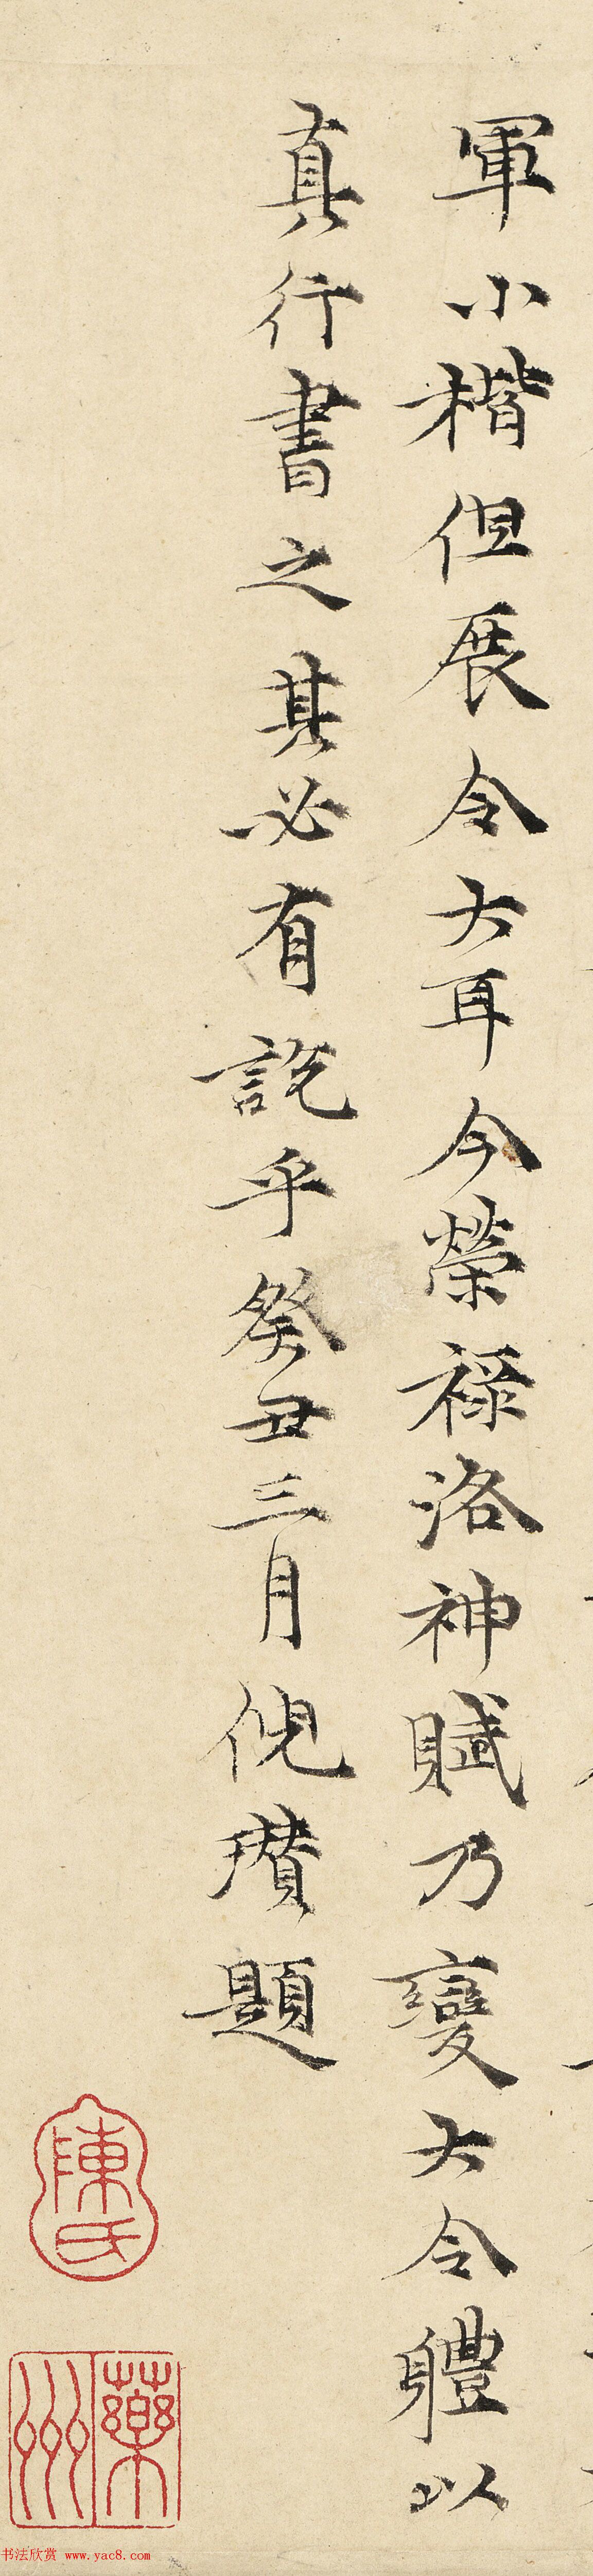 軍小楷但展令大耳今榮禄洛神賦乃變大令軆以
真行書之其必有說乎癸丑三月倪瓚題
陳氏
藥洲
书法欣赏 www.yac8.com